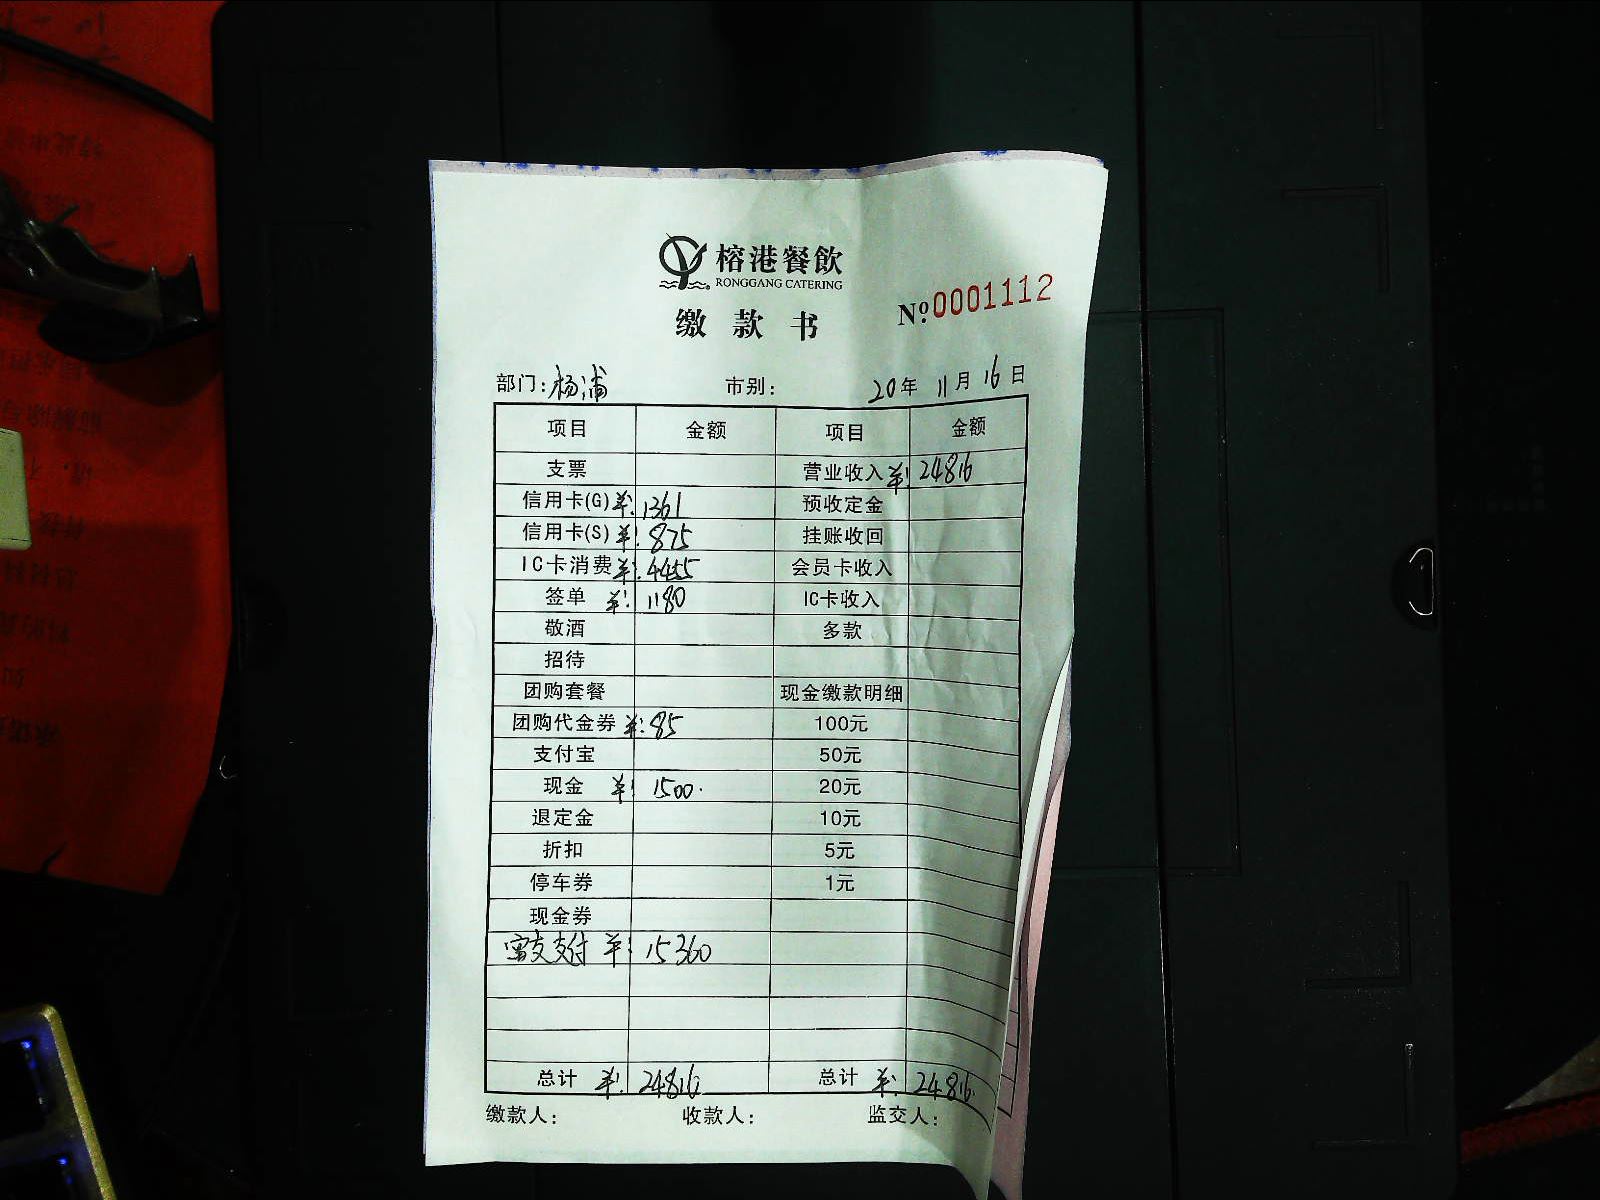 榕港餐飲
RONGGANG CATERING
缴款书
Nº0001112
部门:杨浦 市别: 20年 11月 16日
项目 金额 项目 金额
支票 营业收入 ¥:24816
信用卡(G) ¥:1361 预收定金
信用卡(S) ¥:875 挂账收回
IC卡消费 ¥:4455 会员卡收入
签单 ¥:1180 IC卡收入
敬酒 多款
招待
团购套餐 现金缴款明细
团购代金券 ¥:85 100元
支付宝 50元
现金 ¥:1500. 20元
退定金 10元
折扣 5元
停车券 1元
现金券
支付 ¥:15360
总计 ¥:24816 总计 ¥:24816.
缴款人: 收款人: 监交人: